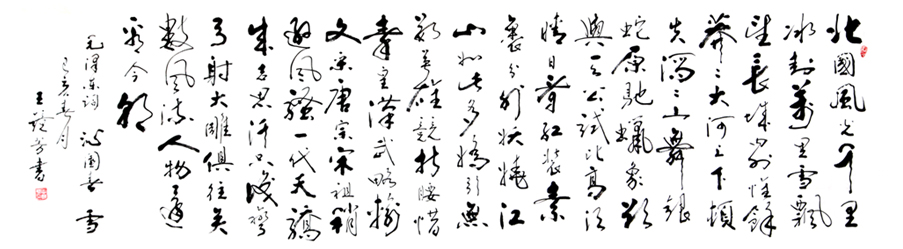 北國風光千里
冰封萬里雪飄
望長城内外惟餘
莽々大河上下頓
失滔々山舞銀
蛇原馳蠟象欲
與天公試比高須
晴日看紅裝素
裹分外妖嬈江
山如此多嬌引無
數英雄競折腰惜
秦皇漢武略輸
文采唐宗宋祖稍
遜風騷一代天驕
成吉思汗只識彎
弓射大雕俱往矣
數風流人物還
看今朝
毛澤東詞 沁園春 雪
己亥春月
王芳書